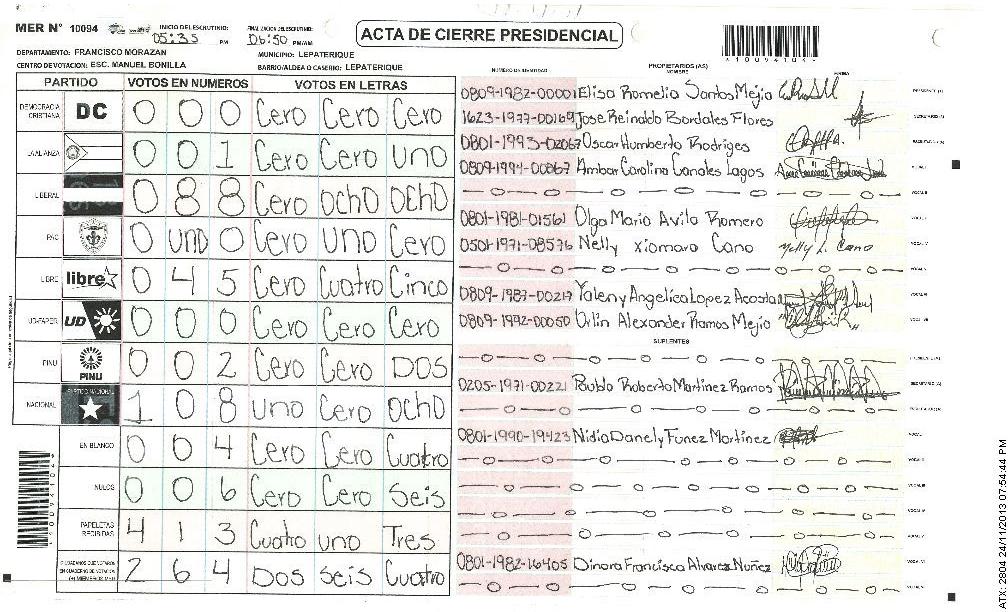 MER N° 10094 INICIO DEL ESCRUTINIO: 05:35 PM FINALIZACION DEL ESCRUTINIO: 06:50 PM/AM
ACTA DE CIERRE PRESIDENCIAL
DEPARTAMENTO: FRANCISCO MORAZAN MUNICIPIO: LEPATERIQUE
CENTRO DE VOTACION: ESC. MANUEL BONILLA BARRIO/ALDEA O CASERIO: LEPATERIQUE
PARTIDO VOTOS EN NUMEROS VOTOS EN LETRAS
DEMOCRACIA CRISTIANA DC 0 0 0 Cero Cero Cero
LA ALIANZA 0 0 1 Cero Cero uno
LIBERAL 0 8 8 Cero ocho ocho
PAC 0 uno 0 Cero uno Cero
LIBRE libre 0 4 5 Cero Cuatro Cinco
UD-FAPER UD 0 0 0 Cero Cero Cero
PINU PINU 0 0 2 Cero Cero Dos
NACIONAL 1 0 8 uno Cero ocho
EN BLANCO 0 0 4 Cero Cero Cuatro
NULOS 0 0 6 Cero Cero Seis
PAPELETAS RECIBIDAS 4 1 3 Cuatro uno Tres
CIUDADANOS QUE VOTARON EN CUADERNO DE VOTACION (+) MIEMBROS MER 2 6 4 Dos Seis Cuatro
NUMERO DE IDENTIDAD PROPIETARIOS (AS) NOMBRE FIRMA
0809-1982-00001 Elisa Romelia Santos Mejia PRESIDENTE (A)
1623-1977-00169 Jose Reinaldo Bordales Flores SECRETARIO (A)
0801-1993-02067 Oscar Humberto Rodriges
0809-1994-00067 Ambar Carolina Canales Lagos
0801-1981-01561 Olga Mario Avila Romero
0501-1971-08576 Nelly xiomara Cano Nelly L. Cano
0809-1987-00219 Yaleny Angelica Lopez Acosta
0809-1992-00050 Orlin Alexander Ramos Mejia
SUPLENTES
0205-1971-00221 Pablo Roberto Martinez Ramos SECRETARIO (A)
0801-1990-19423 Nidia Danely Funez Martinez
0801-1982-16405 Dinora Francisca Alvarez Nuñez
ATX: 2804 24/11/2013 07:54:44 PM